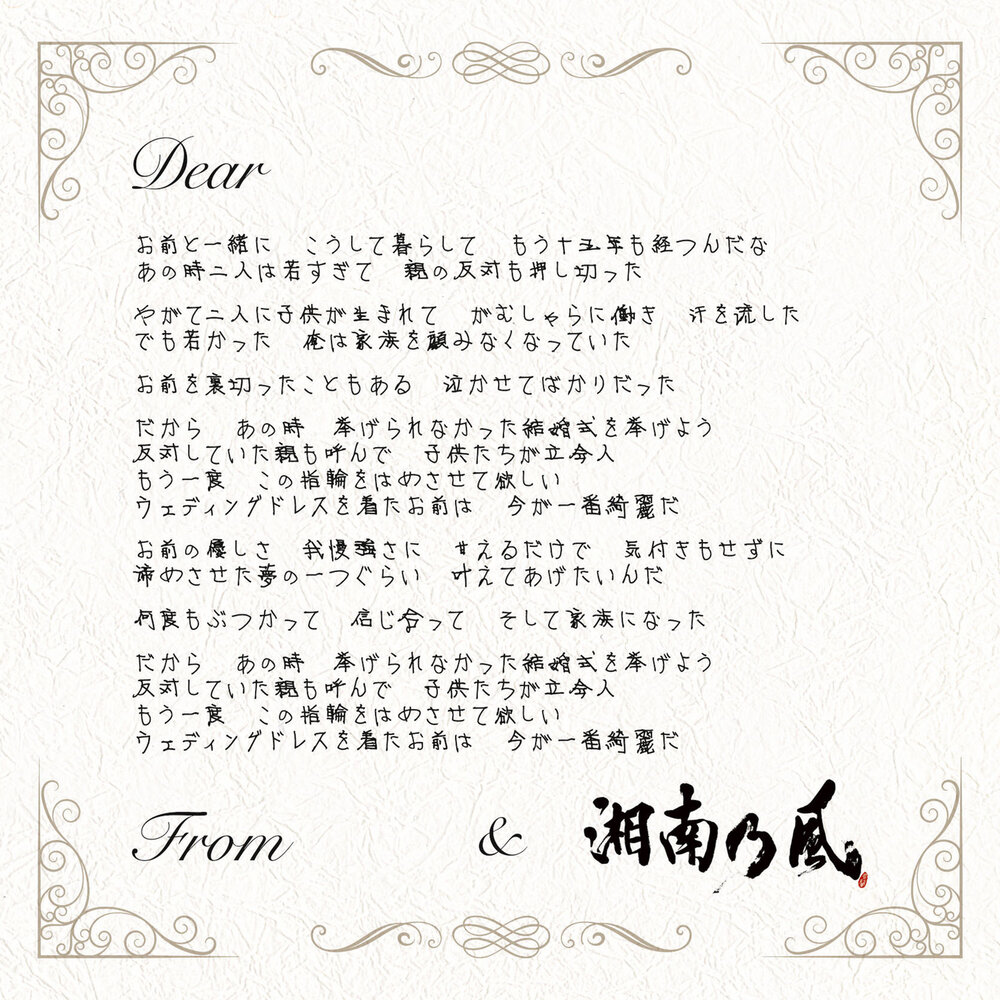 Dear
お前と一緒に　こうして暮らして　もう十五年も経つんだな
あの時二人は若すぎて　親の反対も押し切った
やがて二人に子供が生まれて　がむしゃらに働き　汗を流した
でも若かった　俺は家族を顧みなくなっていた
お前を裏切ったこともある　泣かせてばかりだった
だから　あの時　挙げられなかった結婚式を挙げよう
反対していた親も呼んで　子供たちが立会人
もう一度　この指輪をはめさせて欲しい
ウェディングドレスを着たお前は　今が一番綺麗だ
お前の優しさ　我慢強さに　甘えるだけで　気付きもせずに
諦めさせた夢の一つぐらい　叶えてあげたいんだ
何度もぶつかって　信じ合って　そして家族になった
だから　あの時　挙げられなかった結婚式を挙げよう
反対していた親も呼んで　子供たちが立会人
もう一度　この指輪をはめさせて欲しい
ウェディングドレスを着たお前は　今が一番綺麗だ
From　&　湘南乃風